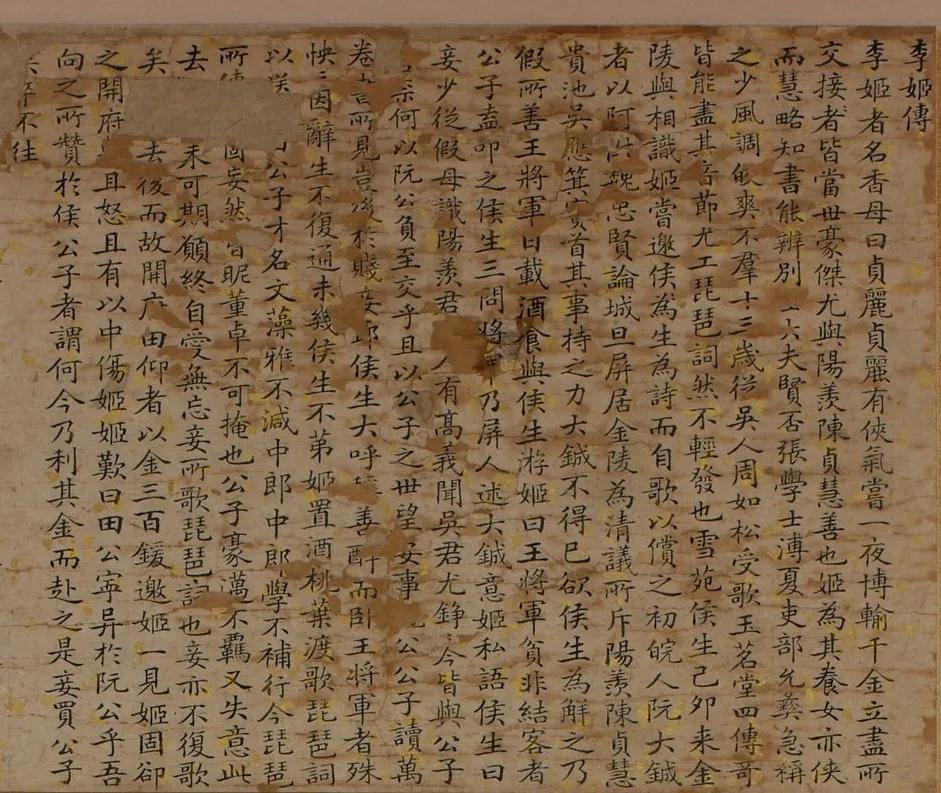 李姬傳
李姬者名香母曰貞麗貞麗有俠氣嘗一夜博輸千金立盡所
交接者皆當世豪傑尤與陽羨陳貞慧善也姬為其養女亦俠
而慧略知書能辨別大夫賢否張學士溥夏吏部允彝急稱
之少風調皎爽不羣十三歲從吳人周如松受歌玉茗堂四傳奇
皆能盡其音節尤工琵琶詞然不輕發也雪苑侯生己卯来金
陵與相識姬嘗邀侯為生為詩而自歌以償之初皖人阮大鋮
者以阿附魏忠賢論城旦屏居金陵為清議所斥陽羨陳貞慧
貴池吳應箕實首其事持之力大鋮不得已欲侯生為解之乃
假所善王將軍日載酒食與侯生游姬曰王將軍貧非結客者
公子盍叩之侯生三問將軍乃屏人述大鋮意姬私語侯生曰
妾少從假母識陽羨君人有高義聞吳君尤錚〻今皆與公子
柰何以阮公負至交乎且以公子之世望安事公公子讀萬
卷所見豈後於賤妾邪侯生大呼善酣而卧王將軍者殊
怏〻因辭生不復通未幾侯生不第姬置酒桃葉渡歌琵琶詞
以送公子才名文藻雅不減中郎中郎學不補行今琵琶
所傳固妄然嘗昵董卓不可掩也公子豪邁不羈又失意此
去未可期願終自愛無忘妾所歌琵琶詞也妾亦不復歌
矣去後而故開府田仰者以金三百鍰邀姬一見姬固卻
之開府且怒且有以中傷姬姬歎曰田公寧異於阮公乎吾
向之所贊於侯公子者謂何今乃利其金而赴之是妾買公子
矣卒不往